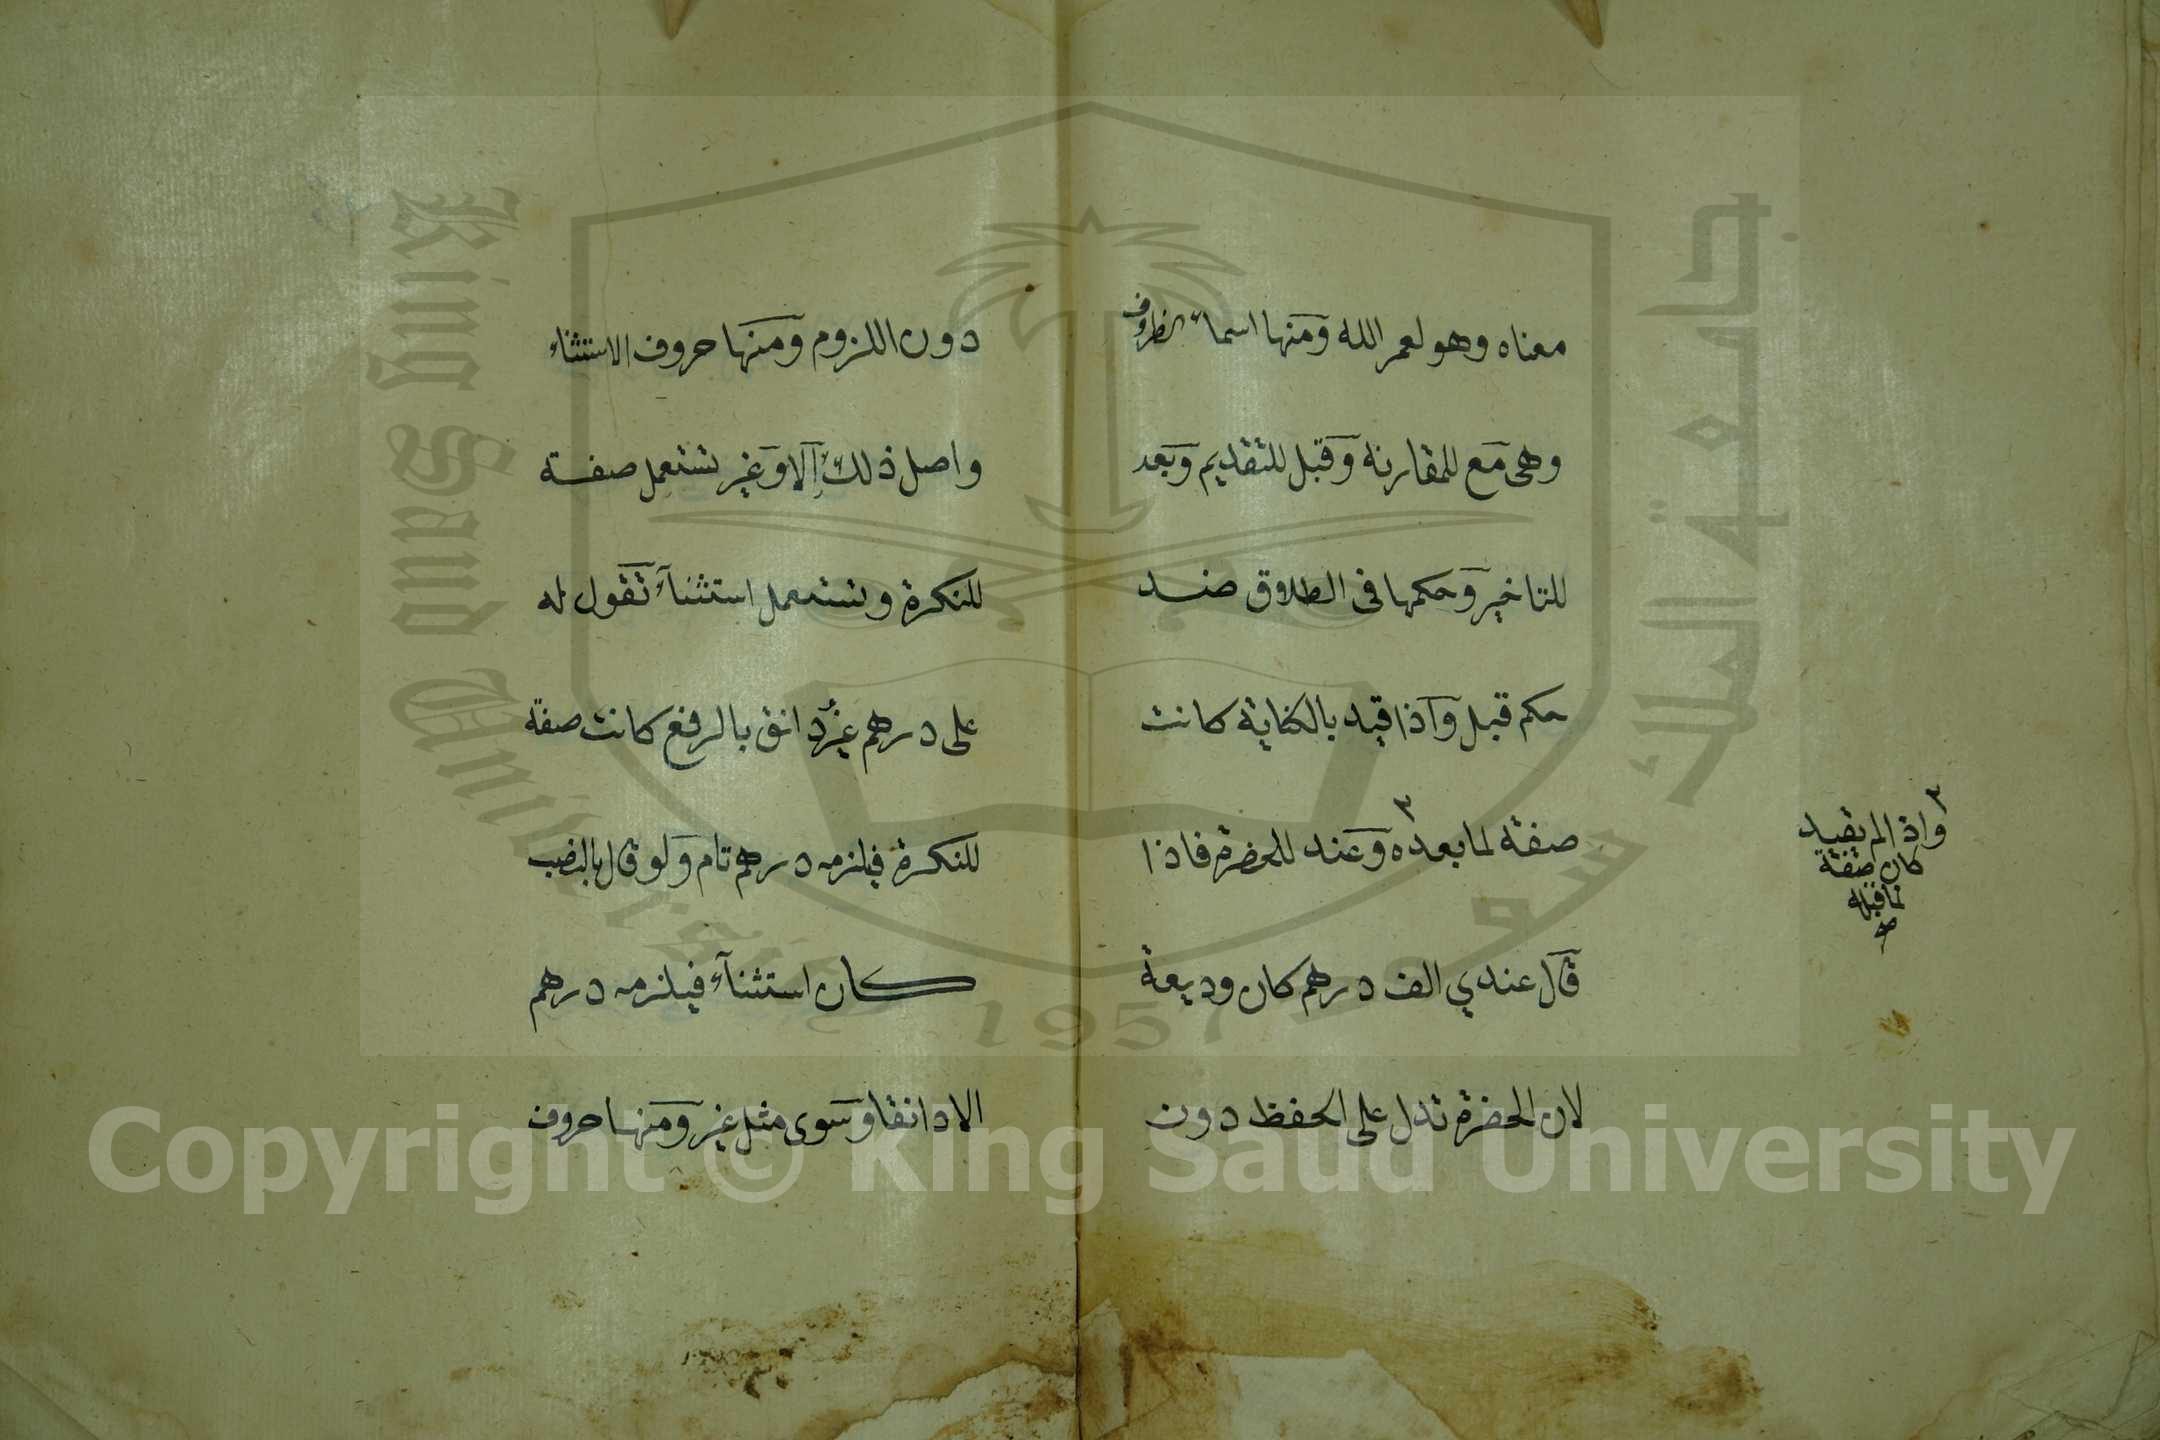 معناه وهو لعمر الله ومنها اسماء الظروف
وهى مع للمقارنة وقبل للتقديم وبعد
للتاخير وحكمها فى الطلاق ضد
حكم قبل واذا قيد بالكناية كانت
صفة لما بعده ٣ وعند للحضرة فاذا
قال عندي الف درهم كان وديعة
لان الحضرة تدل على الحفظ دون
٣
واذا لم يقيد
كان صفة
لما قبله
صح
دون اللزوم ومنها حروف الاستثناء
واصل ذلك إلا وغير تستعمل صفة
للنكرة وتستعمل استثنآء تقول له
على درهم غير دانق بالرفع كانت صفة
للنكرة فيلزمه درهم تام ولو قال بالنصب
كان استثنآء فيلزمه درهم
الا دانقا وسوى مثل غير ومنها حروف
King Saud University
جامعة الملك سعود
1957
Copyright © King Saud University